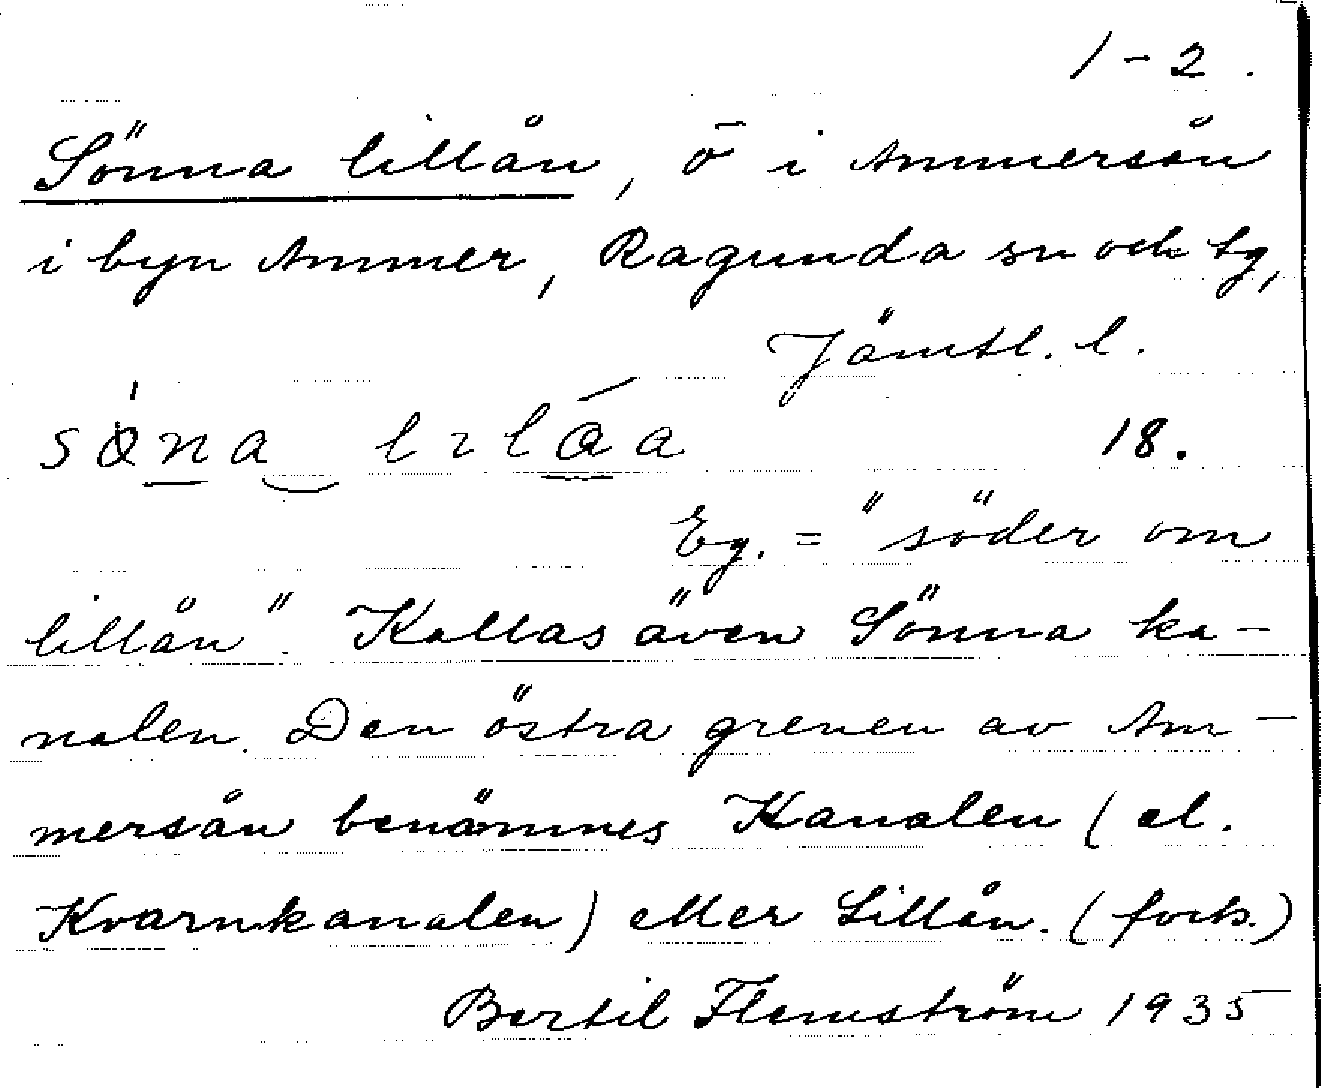 1-2.
Sönna lillån, ö i Ammerån
i byn Ammer, Ragunda sn och tg,
Jämtl. l.
18.
Eg. = "söder om
lillån". Kallas även Sönna ka-
nalen. Den östra grenen av Am-
merån benämnes Kanalen (el.
Kvarnkanalen) eller Lillån. (forts.)
Bertil Flemström 1935